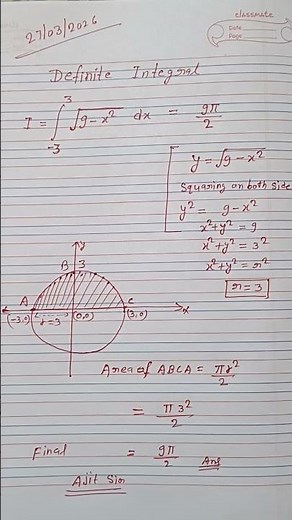 27/03/2026
classmate
Date
Page
Definite Integral
I = ∫₋₃³ √9-x² dx = 9π/2
y = √9-x²
Squaring on both side
y² = 9-x²
x²+y² = 9
x²+y² = 3²
x²+y² = r²
r = 3
y
B 3
A C
(-3,0) r=3 (0,0) (3,0) x
Area of ABCA = πr²/2
= π3²/2
Final = 9π/2 Ans
Ajit Sir